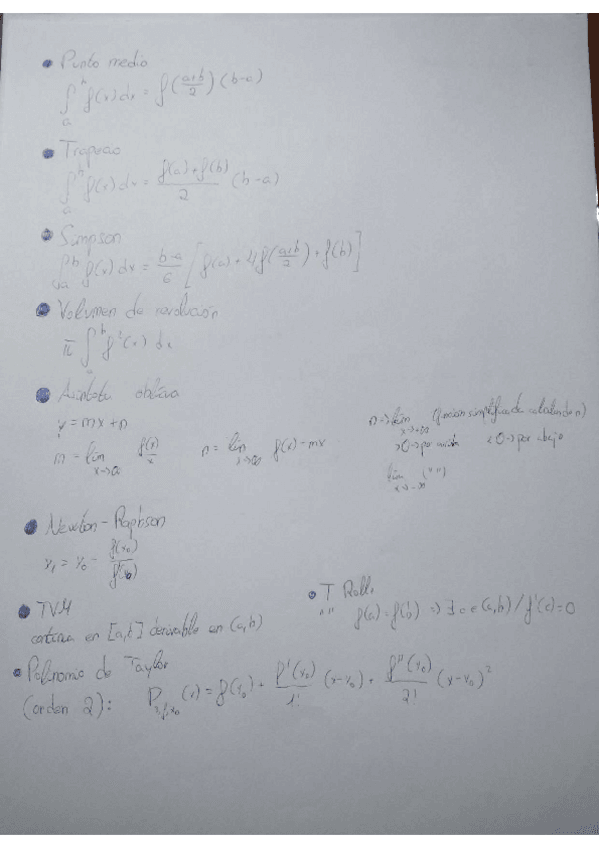 Punto medio
∫ₐᵇ f(x) dx = f((a+b)/2) (b-a)
Trapecio
∫ₐᵇ f(x) dx = (f(a)+f(b))/2 (b-a)
Simpson
∫ₐᵇ f(x) dx = (b-a)/6 [f(a) + 4f((a+b)/2) + f(b)]
Volumen de revolución
π ∫ₐᵇ f²(x) dx
Asíntota oblicua
y = mx + n
m = lim x→∞ f(x)/x
n = lim x→∞ f(x) - mx
n → lim x→+∞
>0 → por arriba <0 → por abajo
lim x→-∞ (" ")
Newton-Raphson
x₁ = x₀ - f(x₀)/f'(x₀)
TVM
continua en [a,b] derivable en (a,b)
T Rolle
" " f(a) = f(b) ⇒ ∃ c ∈ (a,b) / f'(c) = 0
Polinomio de Taylor
(orden 2): P₂,f,x₀ (x) = f(x₀) + f'(x₀)/1! (x-x₀) + f''(x₀)/2! (x-x₀)²